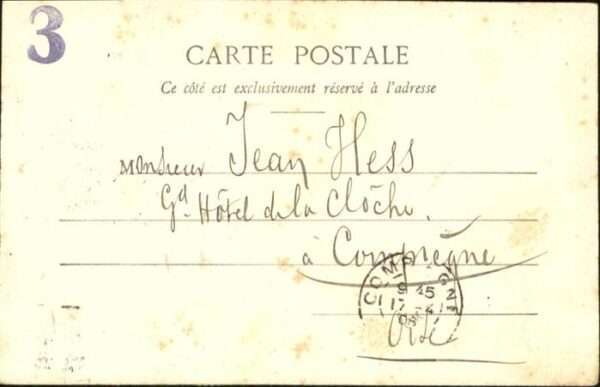 3
CARTE POSTALE
Ce côté est exclusivement réservé à l'adresse
Monsieur Jean Hess
Gd Hôtel de la Clôche.
à Compiègne
COMP GNE
9 45
Oise